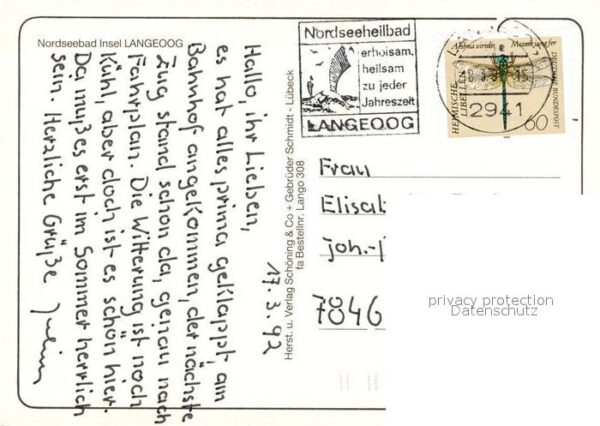 Nordseebad Insel LANGEOOG
17.3.92
Hallo, ihr Lieben,
es hat alles prima geklappt, am
Bahnhof angekommen, der nächste
Zug stand schon da, genau nach
Fahrplan. Die Witterung ist noch
kühl, aber doch ist es schön hier.
Da muß es erst im Sommer herrlich
sein. Herzliche Grüße
Herst. u. Verlag Schöning & Co + Gebrüder Schmidt - Lübeck
fa Bestellnr. Lango 308
Nordseeheilbad
erholsam,
heilsam
zu jeder
Jahreszeit
LANGEOOG
2941
HEIMISCHE
LIBELLEN
DEUTSCHE BUNDESPOST
60
Frau
Elisab
joh.-
7846
privacy protection
Datenschutz